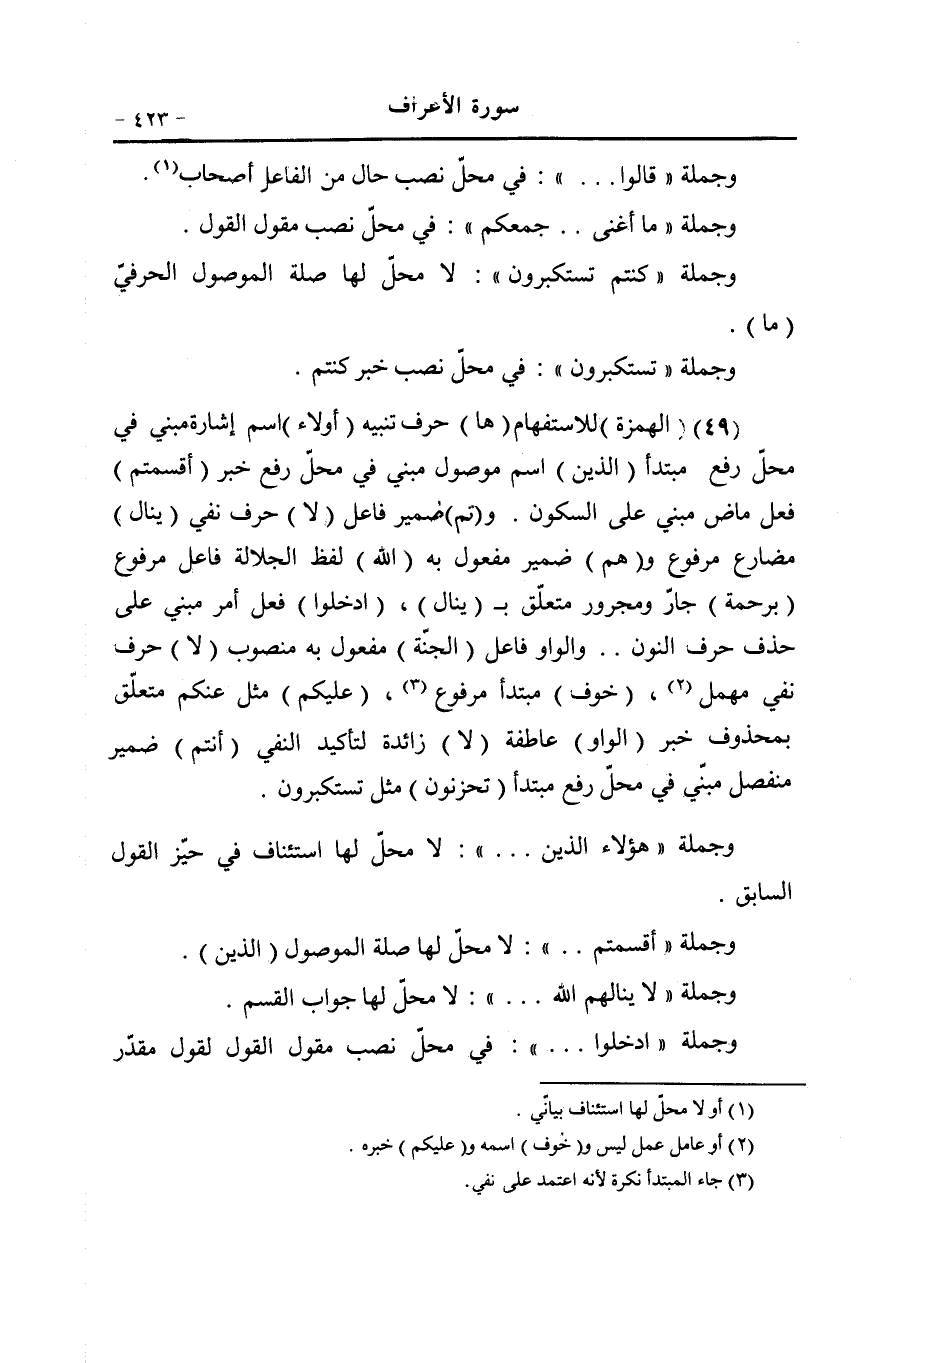 سورة الأعراف
- ٤٢٣ -
وجملة « قالوا . . . » : في محلّ نصب حال من الفاعل أصحاب(١) .
وجملة « ما أغنى . . جمعكم » : في محلّ نصب مقول القول .
وجملة « كنتم تستكبرون » : لا محلّ لها صلة الموصول الحرفيّ
( ما ) .
وجملة « تستكبرون » : في محلّ نصب خبر كنتم .
(٤٩) ( الهمزة )للاستفهام( ها ) حرف تنبيه ( أولاء )اسم إشارةمبني في
محلّ رفع مبتدأ ( الذين ) اسم موصول مبني في محلّ رفع خبر ( أقسمتم )
فعل ماض مبني على السكون . و(تم)ضمير فاعل ( لا ) حرف نفي ( ينال )
مضارع مرفوع و( هم ) ضمير مفعول به ( الله ) لفظ الجلالة فاعل مرفوع
( برحمة ) جارّ ومجرور متعلّق بـ ( ينال ) ، ( ادخلوا ) فعل أمر مبني على
حذف حرف النون . . والواو فاعل ( الجنّة ) مفعول به منصوب ( لا ) حرف
نفي مهمل (٢) ، ( خوف ) مبتدأ مرفوع (٣) ، ( عليكم ) مثل عنكم متعلّق
بمحذوف خبر ( الواو ) عاطفة ( لا ) زائدة لتأكيد النفي ( أنتم ) ضمير
منفصل مبنّي في محلّ رفع مبتدأ ( تحزنون ) مثل تستكبرون .
وجملة « هؤلاء الذين . . . » : لا محلّ لها استئناف في حيّز القول
السابق .
وجملة « أقسمتم . . » : لا محلّ لها صلة الموصول ( الذين ) .
وجملة « لا ينالهم الله . . . » : لا محلّ لها جواب القسم .
وجملة « ادخلوا . . . » : في محلّ نصب مقول القول لقول مقدّر
(١) أو لا محلّ لها استئناف بيانّي .
(٢) أو عامل عمل ليس و( خوف ) اسمه و( عليكم ) خبره .
(٣) جاء المبتدأ نكرة لأنه اعتمد على نفي.